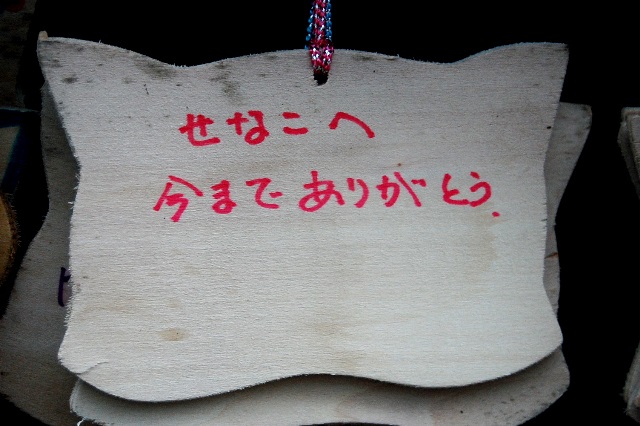 せなこへ
今までありがとう.